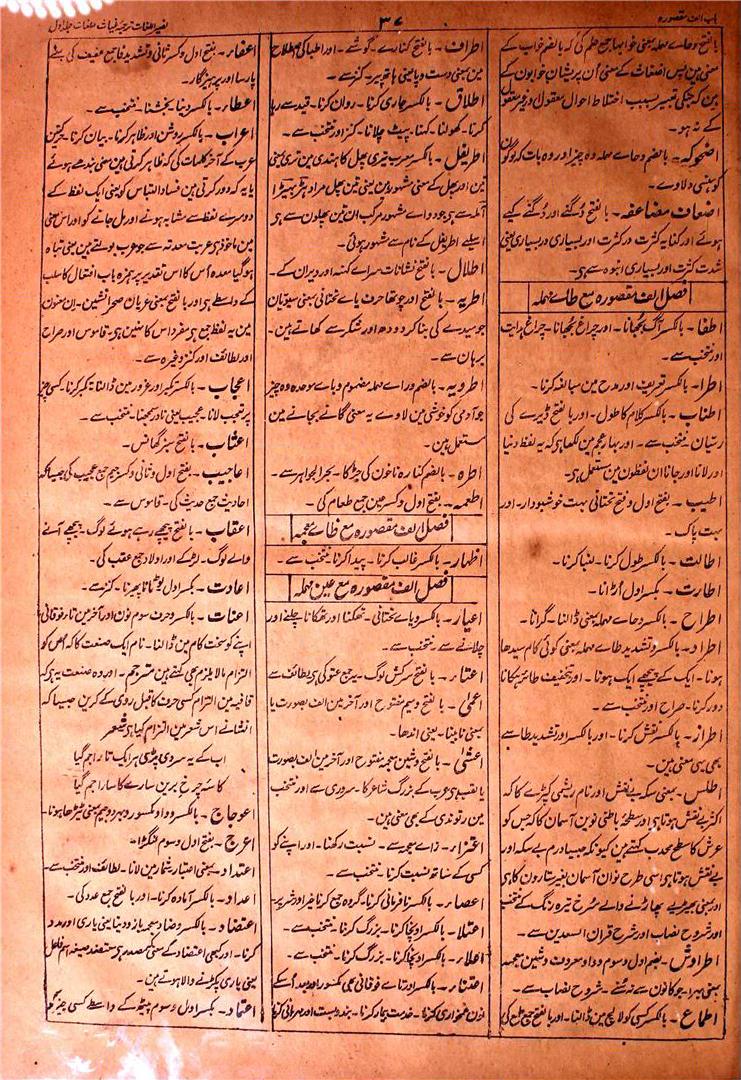 باب الف مقصورہ
۳۷
نصیر اللغات ترجمہ غیاث اللغات جلد اول
بالفتح و حاے مہملہ بمعنی خوابہا جمع حلم کی کہ بالضم خواب کے
معنی میں پس اضغاث کے معنی اُن پریشان خوابوں کے
ہیں کہ جنکی تعبیر بسبب اختلاط احوال معقول و غیر معقول
کے نہ ہو۔
اضحوکہ۔ بالضم و حاے مہملہ وہ چیز اور وہ بات کہ لوگوں
کو ہنسی دلاوے۔
اضعاف مضاعفہ۔ بالفتح دُگنے اور دُگنے کیے
ہوئے اور کنایہ کثرت در کثرت اور بسیاری در بسیاری یعنی
شدت کثرت اور بسیاری انبوہ سے ہی۔
فصل الف مقصورہ مع طاے مہملہ
اطفا۔ بالکسر آگ بُجھانا۔ اور چراغ بُجھانا۔ چراغ ہدایت
اور منتخب سے۔
اطرا۔ بالکسر تعریف اور مدح میں مبالغہ کرنا۔
اطناب۔ بالکسر کلام کا طول۔ اور بالفتح ڈیرے کی
رسیاں۔ منتخب سے۔ اور بہار عجم میں لکھا ہی کہ یہ لفظ دنیا
اور لانا اور جانا ان لفظوں میں مستعمل ہی۔
اطیب۔ بفتح اول و فتح تحتانی بہت خوشبودار۔ اور
بہت پاک۔
اطالت۔ بالکسر طول کرنا۔ لنبا کرنا۔
اطارت۔ بکسر اول اُڑانا۔
اطراح۔ بالکسر و حاے مہملہ بمعنی ڈالنا۔ گرانا۔
اطراد۔ بالکسر و تشدید طاے مہملہ بمعنی کوئی کام سیدھا
ہونا۔ ایک کے پیچھے ایک ہونا۔ اور بتخفیف طا نزیکانا
دور کرنا۔ صراح اور منتخب سے۔
اطراز۔ بالکسر نقش کرنا۔ اور بالکسر اور تشدید طا سے
بھی یہی معنی ہیں۔
اطلس۔ بمعنی سکہ بے نقش اور نام ریشمی کپڑے کا کہ
اکثر بے نقش ہوتا ہی اور سطح باطنی نویں آسمان کا کہ جس کو
عرش کا سطح محدب کہتے ہیں کیونکہ جیسا درم بے سکہ اور
بے نقش ہوتا ہی اسی طرح نواں آسمان بغیر ستاروں کا ہی
اور بمعنی بھیڑیے پھاڑنے والے سُرخ تیرہ رنگ کے منتخب
اور شروح نصاب اور شرح قران السعدین سے۔
اطروش۔ بضم اول و سوم و واو معروف و شین معجمہ
بمعنی بہرا۔ جو کانوں سے نہ سُنے۔ شروح نصاب سے۔
اطماع۔ بالکسر کسی کو لالچ میں ڈالنا۔ اور بالفتح جمع طمع کی
اطراف۔ بالفتح کنارے۔ گوشے۔ اور اطبا کی اصطلاح
میں بمعنی دست و پا یعنی ہاتھ پیر۔ کنز سے۔
اطلاق۔ بالکسر جاری کرنا۔ رواں کرنا۔ قید سے رہا
کرنا۔ کھولنا۔ کہنا۔ پیٹ چلانا۔ کنز اور منتخب سے۔
اطریفل۔ بالکسر معرب تری پھل کا ہندی میں تری بمعنی
تین اور پھل کے معنی مشہور ہیں یعنی تین پھل مراد ہڑ بہیڑا
آملہ سے ہی جو دواے مشہور مرکب ان تین پھلوں سے ہی
اسلیے اطریفل کے نام سے مشہور ہوئی۔
اطلال۔ بالفتح نشانات سراے کہنہ اور ویران کے۔
اطریہ۔ بالفتح اور چوتھا حرف یاے تحتانی بمعنی سیویاں
جو میدے کی بنا کر دودھ اور شکر سے کھاتے ہیں۔
برہان سے۔
اطروبہ۔ بالضم و راے مہملہ مضموم و باے موحدہ وہ چیز
جو آدمی کو خوشی میں لاوے یہ معنی گانے بجانے میں
مستعمل ہیں۔
اطرہ۔ بالضم کنارہ ناخون کی جڑ کا۔ بحر الجواہر سے۔
اطعمہ۔ بفتح اول و کسر عین جمع طعام کی۔
فصل الف مقصورہ مع ظاے معجمہ
اظہار۔ بالکسر غالب کرنا۔ پیدا کرنا۔ منتخب سے۔
فصل الف مقصورہ مع عین مہملہ
اعیار۔ بالکسر و یاے تحتانی۔ تھکنا اور تھکانا چلنے اور
چلانے سے۔ منتخب سے۔
اعتار۔ بالفتح سرکش لوگ۔ یہ جمع عتو کی ہی لطائف سے
اعمیٰ۔ بالفتح و میم مفتوح اور آخر میں الف بصورت یا
بمعنی نابینا۔ یعنی اندھا۔
اعشیٰ۔ بالفتح و شین معجمہ مفتوح اور آخر میں الف بصورت
یا لقب ہی عرب کے بزرگ شاعر کا۔ سروری سے اور منتخب
میں رتوندی کے بھی معنی ہیں۔
اعتزار۔ زاے معجمہ سے۔ نسبت رکھنا۔ اور اپنے کو
کسی کے ساتھ نسبت کرنا۔ منتخب سے۔
اعصار۔ بالکسر نافرمانی کرنا۔ گروہ جمع کرنا خیر اور شر پر۔
اعتلا۔ بالکسر اونچا کرنا۔ بزرگ کرنا۔ منتخب سے۔
اعلار۔ بالکسر اونچا کرنا۔ بزرگ کرنا۔ منتخب سے۔
بالکسر اور تاے فوقانی بھی مکسور اور بعد اُسکے
نون غمخواری کرنا۔ خدمت بیمار کرنا۔ بندوبست اور مہربانی کرنا
اعفار۔ بفتح اول و کسر ثانی و تشدید فا جمع عفیف کی یعنی
پارسا اور پرہیزگار۔
اعطار۔ بالکسر دینا بخشنا۔ منتخب سے۔
اعراب۔ بالکسر روشن اور ظاہر کرنا۔ بیان کرنا۔ حرکتیں
عرب کے آخر کلمات کی کہ ظاہر کرتی ہیں معنی بندھے ہوئے
یا یہ کہ دور کرتی ہیں فساد التباس کو یعنی ایک لفظ کے
دوسرے لفظ سے مشابہ ہونے اور مل جانے کو اور اس معنی
میں ماخوذ ہی عربت معدتہ سے جو عرب بولتے ہیں یعنی تباہ
ہو گیا معدہ اُس کا اس تقدیر پر ہمزہ باب افعال کا سلب
کے واسطے ہی اور بالفتح بمعنی عربان صحرا نشین۔ ان معنوں
میں یہ لفظ جمع ہی مفرد اس کا نہیں ہی۔ قاموس اور صراح
اور لطائف اور کنز وغیرہ سے۔
اعجاب۔ بالکسر تکبر اور غرور میں ڈالنا۔ تکبر کرنا۔ کسی چیز
پر تعجب لانا۔ عجیب یعنی نادر سمجھنا۔ منتخب سے۔
اعشاب۔ بالفتح سبز گھانس۔
اعاجیب۔ بفتح اول و ثانی و کسر جیم جمع عجیب کی جیسا کہ
احادیث جمع حدیث کی۔ قاموس سے۔
اعقاب۔ بالفتح پیچھے رہے ہوئے لوگ۔ پیچھے آنے
والے لوگ۔ لڑکے اور اولاد جمع عقب کی۔
اعادت۔ بکسر اول لوٹانا پھیرنا۔ کنز سے۔
اعنات۔ بالکسر و حرف سوم نون اور آخر میں تاے فوقانی
اپنے کو سخت کام میں ڈالنا۔ نام ایک صنعت کا کہ اُس کو
التزام مالا یلزم بھی کہتے ہیں مترجم۔ اور وہ صنعت یہ ہی کہ
قافیہ میں التزام کسی حرف کا قبل روی کے کریں جیسا کہ
انشا نے اس شعر میں التزام کیا ہی شعر
اب کے یہ سردی پڑی ہر ایک تارا جم گیا
کاسۂ چرخ بریں سارے کا سارا جم گیا
اعوجاج۔ بالکسر و واو مکسور و ہر دو جیم بمعنی ٹیڑھا ہونا۔
اعرج۔ بفتح اول و سوم لنگڑا۔
اعتداد۔ بمعنی اعتبار شمار میں لانا۔ لطائف اور منتخب سے۔
اعداد۔ بالکسر آمادہ کرنا۔ اور بالفتح جمع عدد کی۔
اعتضاد۔ بالکسر و ضاد معجمہ بازو دینا یعنی یاری اور مدد
کرنا۔ اور کبھی اعتضاد کے معنی مصدر ہی معتضد صیغہ اسم فاعل
یعنی یاری پکڑنے والا ہوتے ہیں۔
اعتماد۔ بکسر اول و سوم پیٹھ کے واسطے کسی چیز کو